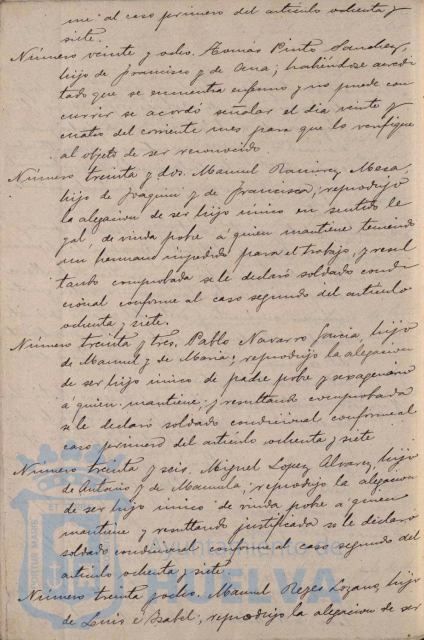 me al caso primero del articulo ochenta y
siete.
Número veinte y ocho. Tomás Pinto Sanchez,
hijo de Francisco y de Ana; habiéndose acredi
tado que se encuentra enfermo y no puede con
currir se acordó señalar el dia veinte y
cuatro del corriente mes para que lo verifique
al objeto de ser reconocido
Número treinta y dos. Manuel Ramirez Mesa
hijo de Joaquin y de Francisca; reprodujo
la alegacion de ser hijo único en sentido le
gal, de viuda pobre á quien mantiene teniendo
un hermano impedido para el trabajo, y resul
tando comprobada se le declaró soldado condi
cional conforme al caso segundo del articulo
ochenta y siete.
Número treinta y tres. Pablo Navarro Garcia, hijo
de Manuel y de Maria; reprodujo la alegacion
de ser hijo único de padre pobre y sexagenario
á quien mantiene; y resultando comprobada
se le declaró soldado condicional conforme al
caso primero del articulo ochenta y siete
Número treinta y seis. Miguel Lopez Alvarez, hijo
de Antonio y de Manuela; reprodujo la alegacion
de ser hijo único de viuda pobre á quien
mantiene y resultando justificada se le declaró
soldado condicional conforme al caso segundo del
articulo ochenta y siete
Número treinta y ocho. Manuel Reyes Lozano, hijo
de Luis é Isabel; reprodujo la alegacion de ser
Ayuntamiento de
HUELVA